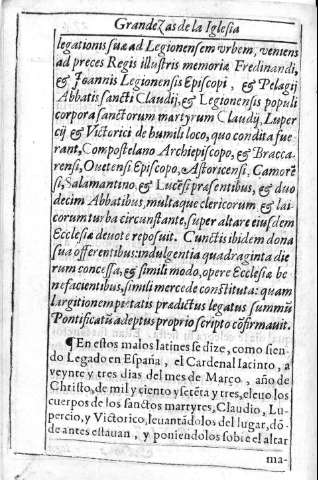 Grandezas de la Iglesia
legationis suæ ad Legionensem vrbem, veniens
ad preces Regis illustris memoriæ Ferdinandi,
& Ioannis Legionensis Episcopi, & Pelagij
Abbatis sancti Claudij, & Legionensis populi
corpora sanctorum martyrum Claudij, Luper
cij & Victorici de humili loco, quo condita fue
rant, Compostelano Archiepiscopo, & Bracca-
rensi, Ouetensi Episcopo, Astoricensi, Camorẽ
si, Salamantino, & Lucẽsi præsentibus, & duo
decim Abbatibus, multaque clericorum & lai
corum turba circunstante, super altare eiusdem
Ecclesiæ deuote reposuit. Cunctis ibidem dona
sua offerentibus: indulgentia quadraginta die
rum concessa, & simili modo, opere Ecclesiæ be
nefacientibus, simili mercede constituta: quam
largitionem pietatis prædictus legatus summũ
Pontificatũ adeptus proprio scripto cõfirmauit.
¶ En estos malos latines se dize, como sien-
do Legado en España, el Cardenal Iacinto, a
veynte y tres dias del mes de Março, año de
Christo, de mil y ciento y setẽta y tres, eleuo los
cuerpos de los sanctos martyres, Claudio, Lu-
percio, y Victorico, leuantãdolos del lugar, dõ-
de antes estauan, y poniendolos sobre el altar
ma-